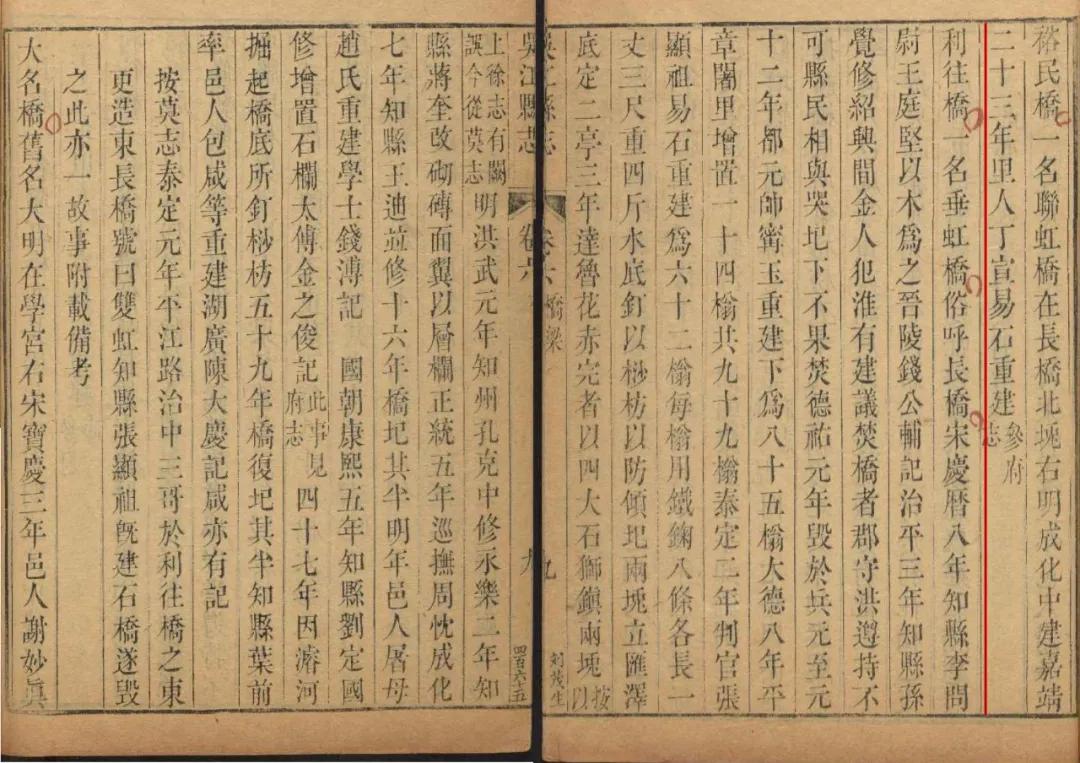 裕民橋一名聯虹橋在長橋北堍右明成化中建嘉靖
二十三年里人丁宣易石重建參府志
利往橋一名垂虹橋俗呼長橋宋慶曆八年知縣李問
尉王庭堅以木爲之晉陵錢公輔記治平三年知縣孫
覺修紹興間金人犯淮有建議焚橋者郡守洪遵持不
可縣民相與哭圯下不果焚德祐元年毀於兵元至元
十二年都元師甯玉重建下爲八十五㮰大德八年平
章闍里增置一十四㮰共九十九㮰泰定二年判官張
顯祖易石重建爲六十二㮰每㮰用鐵錭八條各長一
丈三尺重四斤水底釘以桫枋以防傾圯兩堍立匯澤
底定二亭三年達魯花赤完者以四大石獅鎭兩堍按以
吳江縣志
卷六 橋梁
九
刘茂生
吳江縣志
卷六
九
四百六十五
上徐志有闕誤今從莫志明洪武元年知州孔克中修永樂二年知
縣蔣奎改砌磚面翼以層欄正統五年巡撫周忱成化
七年知縣王迪竝修十六年橋圯其半明年邑人屠母
趙氏重建學士錢溥記 國朝康熙五年知縣劉定國
修增置石欄太傅金之俊記此事見府志四十七年因濬河
掘起橋底所釘桫枋五十九年橋復圯其半知縣葉前
率邑人包咸等重建湖廣陳大慶記咸亦有記
按莫志泰定元年平江路治中三哥於利往橋之東
更造東長橋號曰雙虹知縣張顯祖旣建石橋遂毀
之此亦一故事附載備考
大名橋舊名大明在學宮右宋寶慶三年邑人謝妙眞